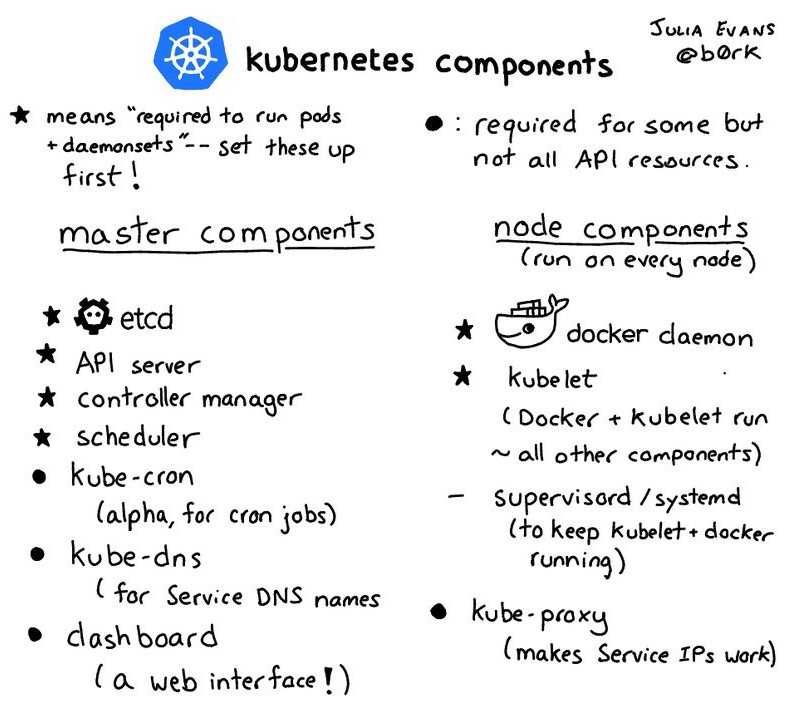 kubernetes components
JULIA EVANS
@b0rk
★ means "required to run pods
+ daemonsets" -- set these up
first!
● : required for some but
not all API resources.
master components
★ etcd
★ API server
★ controller manager
★ scheduler
● kube-cron
(alpha, for cron jobs)
● kube-dns
( for Service DNS names
● dashboard
( a web interface!)
node components
(run on every node)
★ docker daemon
★ kubelet
( Docker + kubelet run
~ all other components)
– supervisord / systemd
(to keep kubelet + docker
running)
● kube-proxy
(makes Service IPs work)